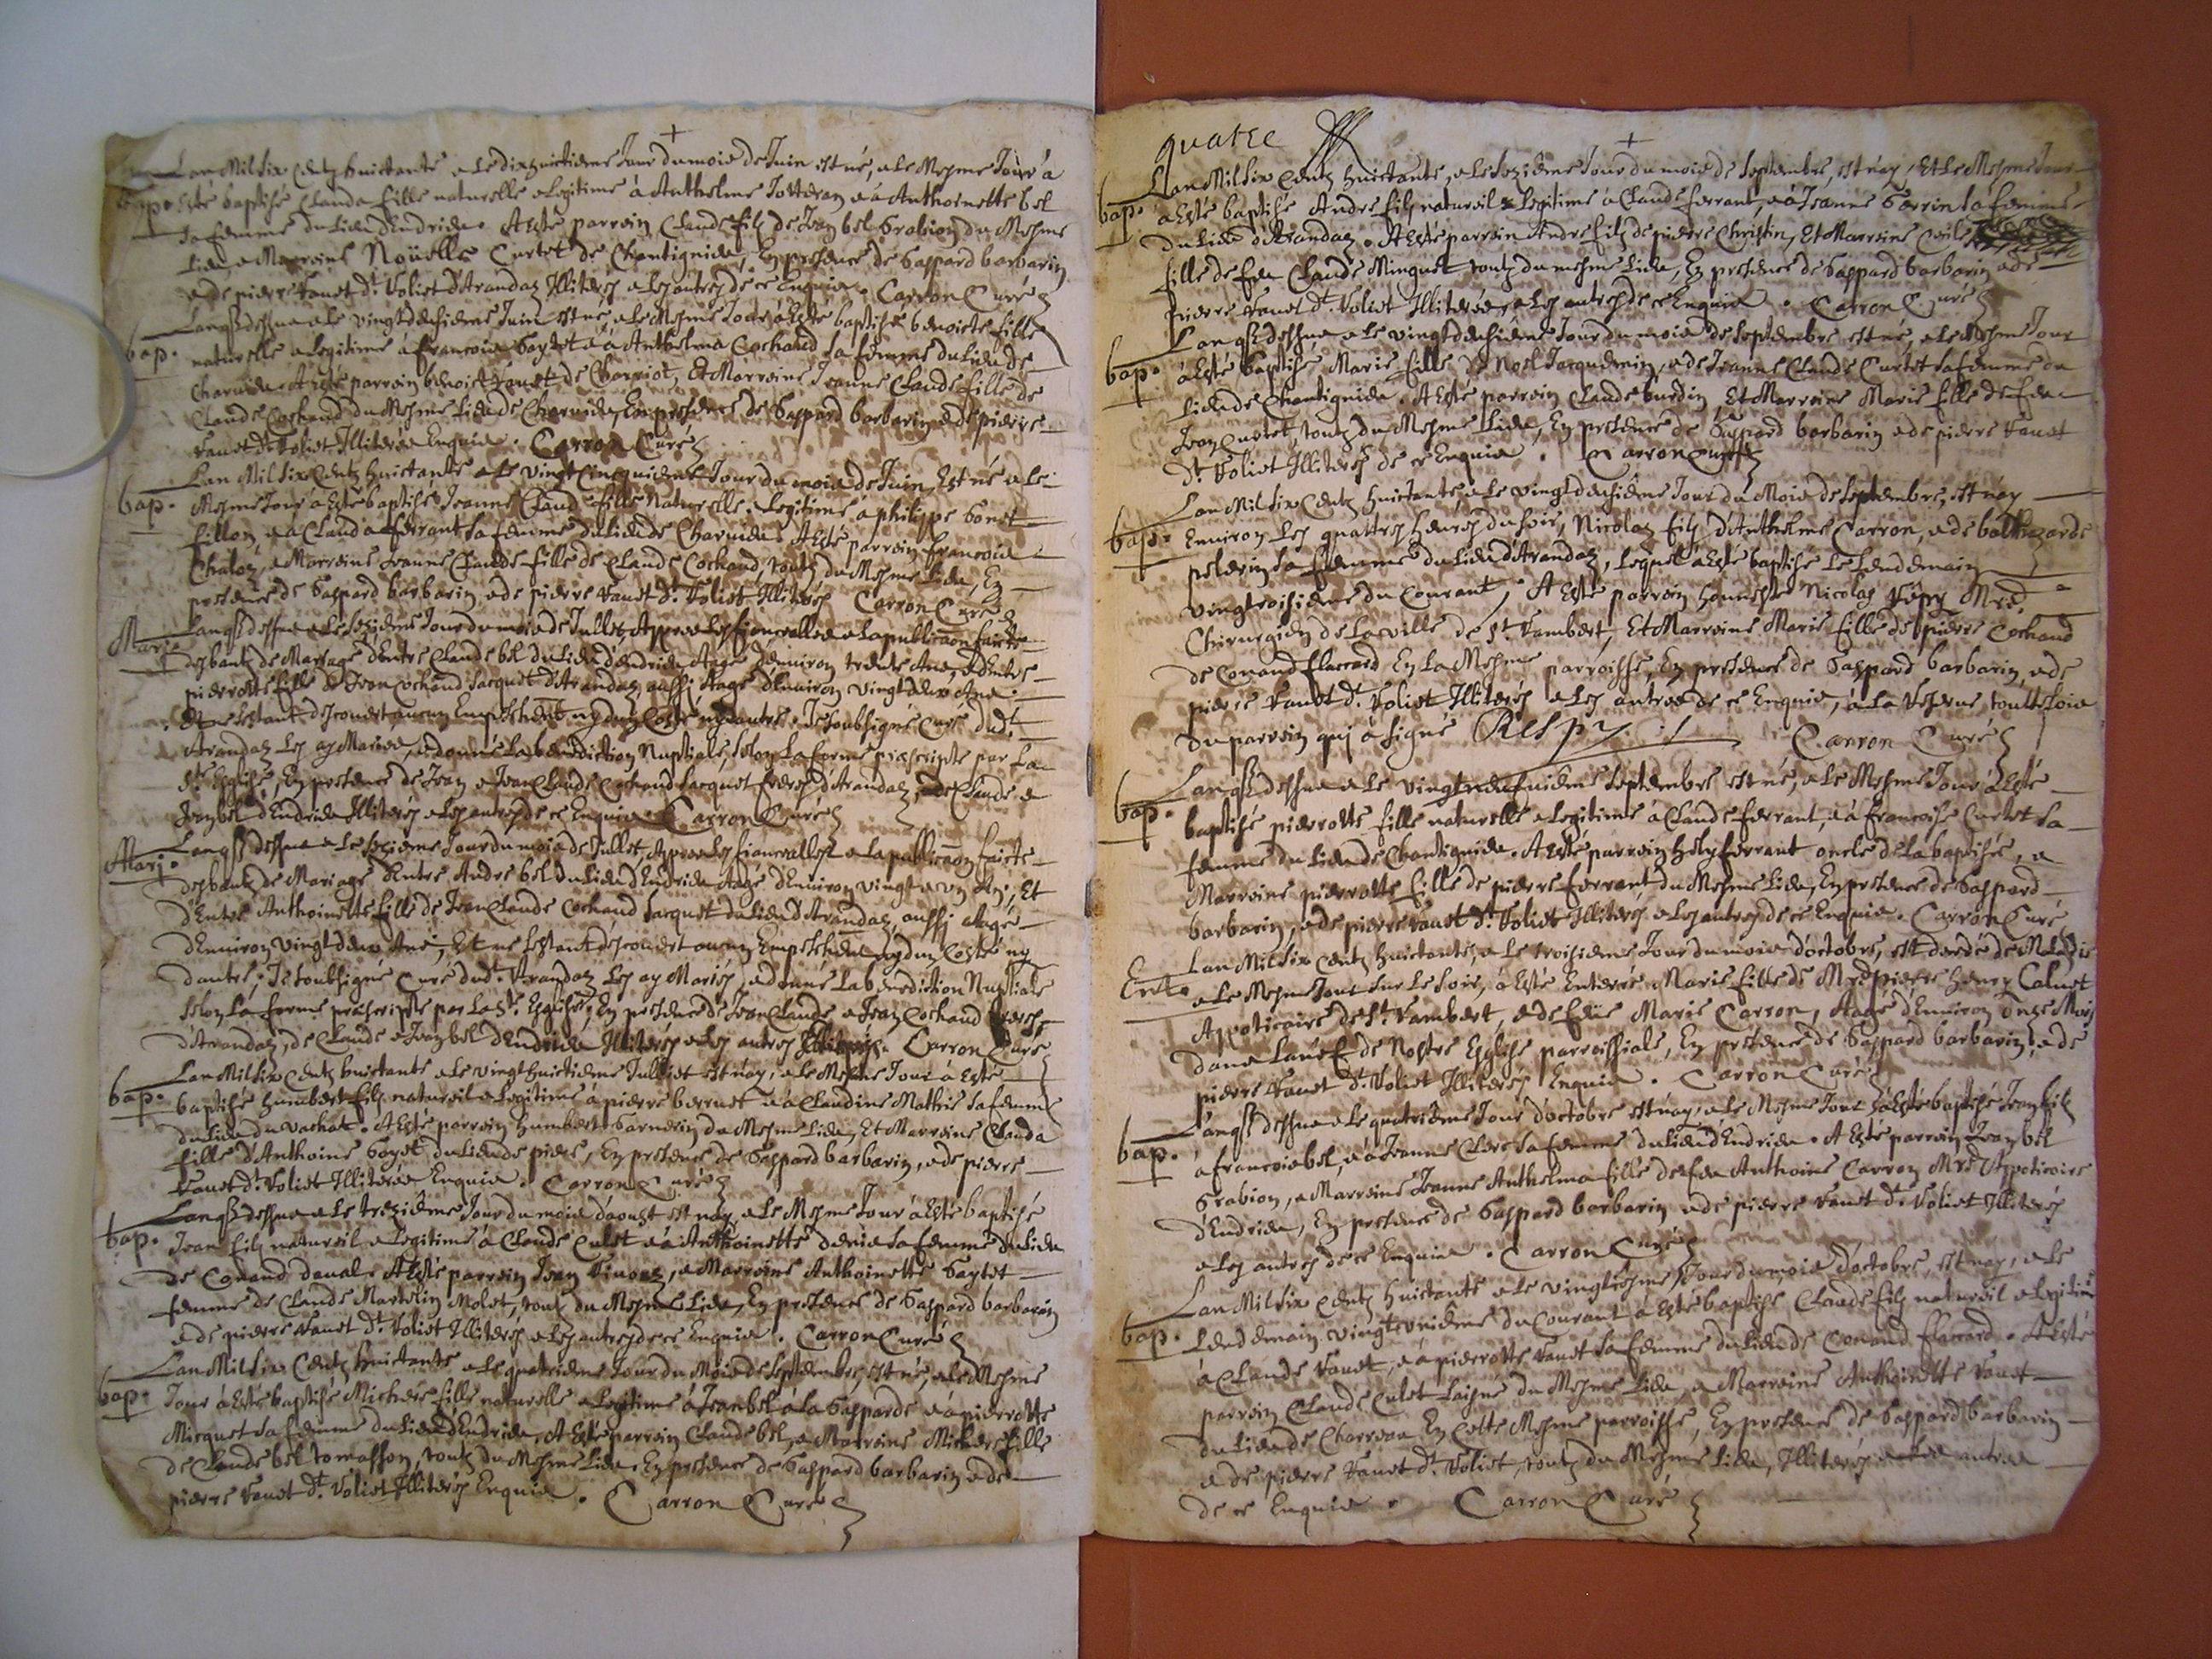 +
Lan Mil Six Centz huictante & le dixhuictieme Jour du mois de Juin est né, & le Mesme Jour à
bap. Esté baptisé Clauda fille naturelle & legitime à Anthelme & à Anthoinette bel
sa femme du lieu dEndrieu. A Esté parrein Claude filz de Jean bel Grabion du Mesme
lieu, & Marreine Noüelle Curtet de Chantignieu, En presence de Gaspard barbarin
& de pierre vanet dt. Voliet dArandaz Illiterés & les autres de ce Enquis. Carron Curé
Lan qs. dessus & le vingtdeusieme Juin est né & le Mesme Jour a Esté baptisé benoicte fille
bap. naturelle & legitime à francois Gaytet & à Anthelma Cochand sa femme du lieu de
Charvieu. A Esté parrein benoict vanet de Charriot, Et Marreine Jeanne Claude fille de
Claude Cochand du Mesme lieu de Charvieu, En presence de Gaspard barbarin & de pierre
vanet dt. Voliet Illiterés Enquis. Carron Curé
Lan Mil Six Centz huictante & le vingtcinquieme Jour du mois de Juin, Est né & le
bap. Mesme Jour a Esté baptisé Jeanne Claude fille Naturelle & legitime à philippe bonet
fillon, & à Clauda ferrant sa femme du lieu de Charvieu. A Esté parrein francois
Chaloz, & Marreine Jeanne Claude fille de Claude Cochand, toutz du Mesme lieu, En
presence de Gaspard barbarin & de pierre vanet dt. Voliet Illiterés Carron Curé
Mari. Lan qs. dessus & le sezieme Jour du mois de Jullet, Appres les fiancealles & la publicaon faicte
des bantz de Mariage dEntre Claude bel du lieu dEndrieu Aagé denviron trente Ans, & dEntre
pierrotte fille de Jean Cochand Jacquet dArandaz, aussi Aagé dEnviron vingtdeux Ans.
Et ne sestant descouvert aucun Empeschement ny dun Costé ny dautre. Je soubsigné Curé dudt.
Arandaz les ay Mariés, & donné la benediction Nuptiale, selon la forme prescripte par la
Ste. Esglise, En presence de Jean & Jean Claude Cochand Jacquet freres dArandaz, de Claude &
Jean bel dEndrieu Illiterés & les autres de ce Enquis. Carron Curé
Mari. Lan qs. dessus & le sezieme Jour du mois de Jullet, Appres les fiancealles & la publicaon faicte
des bantz de Mariage Entre André bel du lieu dEndrieu Aagé dEnviron vingt & un An, Et
dEntre Anthoinette fille de Jean Claude Cochand Jacquet du lieu dArandaz, aussi Aagé
dEnviron vingtdeux Ans, Et ne sestant descouvert aucun Empeschement ny dun Costé ny
dautre, Je soubsigné Curé dudt. Arandaz les ay Mariés, & donné la benediction Nuptiale
selon la forme prescripte par la Ste. Esglise, En presence de Jean Claude & Jean Cochand freres
dArandaz, de Claude & Jean bel dEndrieu Illiterés & les autres Carron Curé
Lan Mil Six Centz huictante & le vingthuictieme Julliet est nay, & le Mesme Jour a Esté
bap. baptisé humbert filz naturel & legitime à pierre berrut & à Claudine Mathie sa femme
du lieu du vachat. A Esté parrein humbert Garnerin du Mesme lieu, Et Marreine Clauda
fille dAnthoine Goyet du lieu de pieu, En presence de Gaspard barbarin, & de pierre
vanet dt. Voliet Illiterés Enquis. Carron Curé
Lan qs. dessus & le trezieme Jour du mois daoust est nay & le Mesme Jour a Esté baptisé
bap. Jean filz naturel & legitime à Claude Culet & à Anthoinette denis sa femme du lieu
de Conand daval. A Esté parrein Jean & Marreine Anthoinette Gaytet
femme de Claude Martelin Molet, toutz du Mesme lieu, En presence de Gaspard barbarin
& de pierre vanet dt. Voliet Illiterés & les autres de ce Enquis. Carron Curé
Lan Mil Six Centz huictante & le quatrieme Jour du Mois de Septembre, est né, & le Mesme
bap. Jour a Esté baptisé Michere fille naturelle & legitime à Jean bel à la Gasparde & à pierrotte
Micquet sa femme du lieu dEndrieu, A Esté parrein Claude bel, & Marreine Michere fille
de Claude bel tomasson, toutz du Mesme lieu, En presence de Gaspard barbarin & de
pierre vanet dt. Voliet Illiterés Enquis. Carron Curé
quatre
+
Lan Mil Six Centz huictante, & le sezieme Jour du mois de Septembre, est nay, Et le Mesme Jour
bap. a Esté baptisé André filz naturel & legitime à Claude ferrant, & à Jeanne Garrin sa femme
du lieu dArandaz. A Esté parrein André filz de pierre Christin, Et Marreine
fille de feu Claude Minguet toutz du mesme lieu, En presence de Gaspard barbarin & de
pierre vanet dt. Voliet Illiterés & les autres de ce Enquis. Carron Curé
Lan qs. dessus & le vingtdeusieme Jour du mois de Septembre est né, & le Mesme Jour
bap. a Esté baptisé Marie fille de Noel Jacquemin, & de Jeanne Claude Curtet sa femme du
lieu de Chantignieu. A Esté parrein Claude burdin, Et Marreine Marie fille de feu
Jean Curtet, toutz du Mesme lieu, En presence de Gaspard barbarin & de pierre vanet
dt. Voliet Illiterés de ce Enquis. Carron Curé
Lan Mil Six Centz huictante, & le vingtdeusieme Jour du Mois de Septembre, est nay
bap. Environ les quattres heures du soir, Nicolas filz dAnthelme Carron, & de balthazarde
pelerin sa femme du lieu dArandaz, lequel a Esté baptisé le lendemain
vingtroisieme du Courant, A Esté parrein honneste Nicolas Mre.
Chirurgien de la ville de St. Rambert, Et Marreine Marie fille de pierre Cochand
de Conand flaccard En la Mesme parroisse, En presence de Gaspard barbarin, & de
pierre vanet dt. Voliet Illiterés & les autres de ce Enquis, à la reserve touttefois
du parrein qui à signé Respy Carron Curé
Lan qs. dessus & le vingtneufvieme Septembre est né, & le Mesme Jour a Esté
bap. baptisé pierrotte fille naturelle & legitime à Claude ferrant, & à francoise Curtet sa
femme du lieu de Chantignieu. A Esté parrein hely ferrant oncle de la baptisée, &
Marreine pierrotte fille de pierre ferrant du Mesme lieu, En presence de Gaspard
barbarin, & de pierre vanet dt. Voliet Illiterés & les autres de ce Enquis. Carron Curé
Lan Mil Six Centz huictante, & le troisieme Jour du mois doctobre, est
Ent. & le Mesme Jour sur le soir, a Esté Enterré Marie fille de Mre. pierre henry Calvet
Appoticaire de St. Rambert, & de feue Marie Carron, Aagé dEnviron onze Mois
dans de Nostre Esglise parroissiale, En presence de Gaspard barbarin, & de
pierre vanet dt. Voliet Illiterés Enquis. Carron Curé
Lan qs. dessus & le quatrieme Jour doctobre est nay, & le Mesme Jour a Esté baptisé Jean filz
bap. à francois bel, & à Jeanne Clerc sa femme du lieu dEndrieu. A Esté parrein Jean bel
Grabion, & Marreine Jeanne Anthelma fille de feu Anthoine Carron Mre. Appoticaire
dEndrieu, En presence de Gaspard barbarin & de pierre vanet dt. Voliet Illiterés
& les autres de ce Enquis. Carron Curé
Lan Mil Six Centz huictante & le vingtiesme Jour du mois doctobre, est nay, & le
bap. lendemain vingtunieme du Courant a Esté baptisé Claude filz naturel & legitime
à Claude vanet, & à pierrotte vanet sa femme du lieu de Conand flaccard. A Esté
parrein Claude Culet laisné du Mesme lieu, & Marreine Anthoinette vanet
du lieu de Charveu En Cette Mesme parroisse, En presence de Gaspard barbarin
& de pierre vanet dt. Voliet, toutz du Mesme lieu, Illiterés & les autres
de ce Enquis. Carron Curé